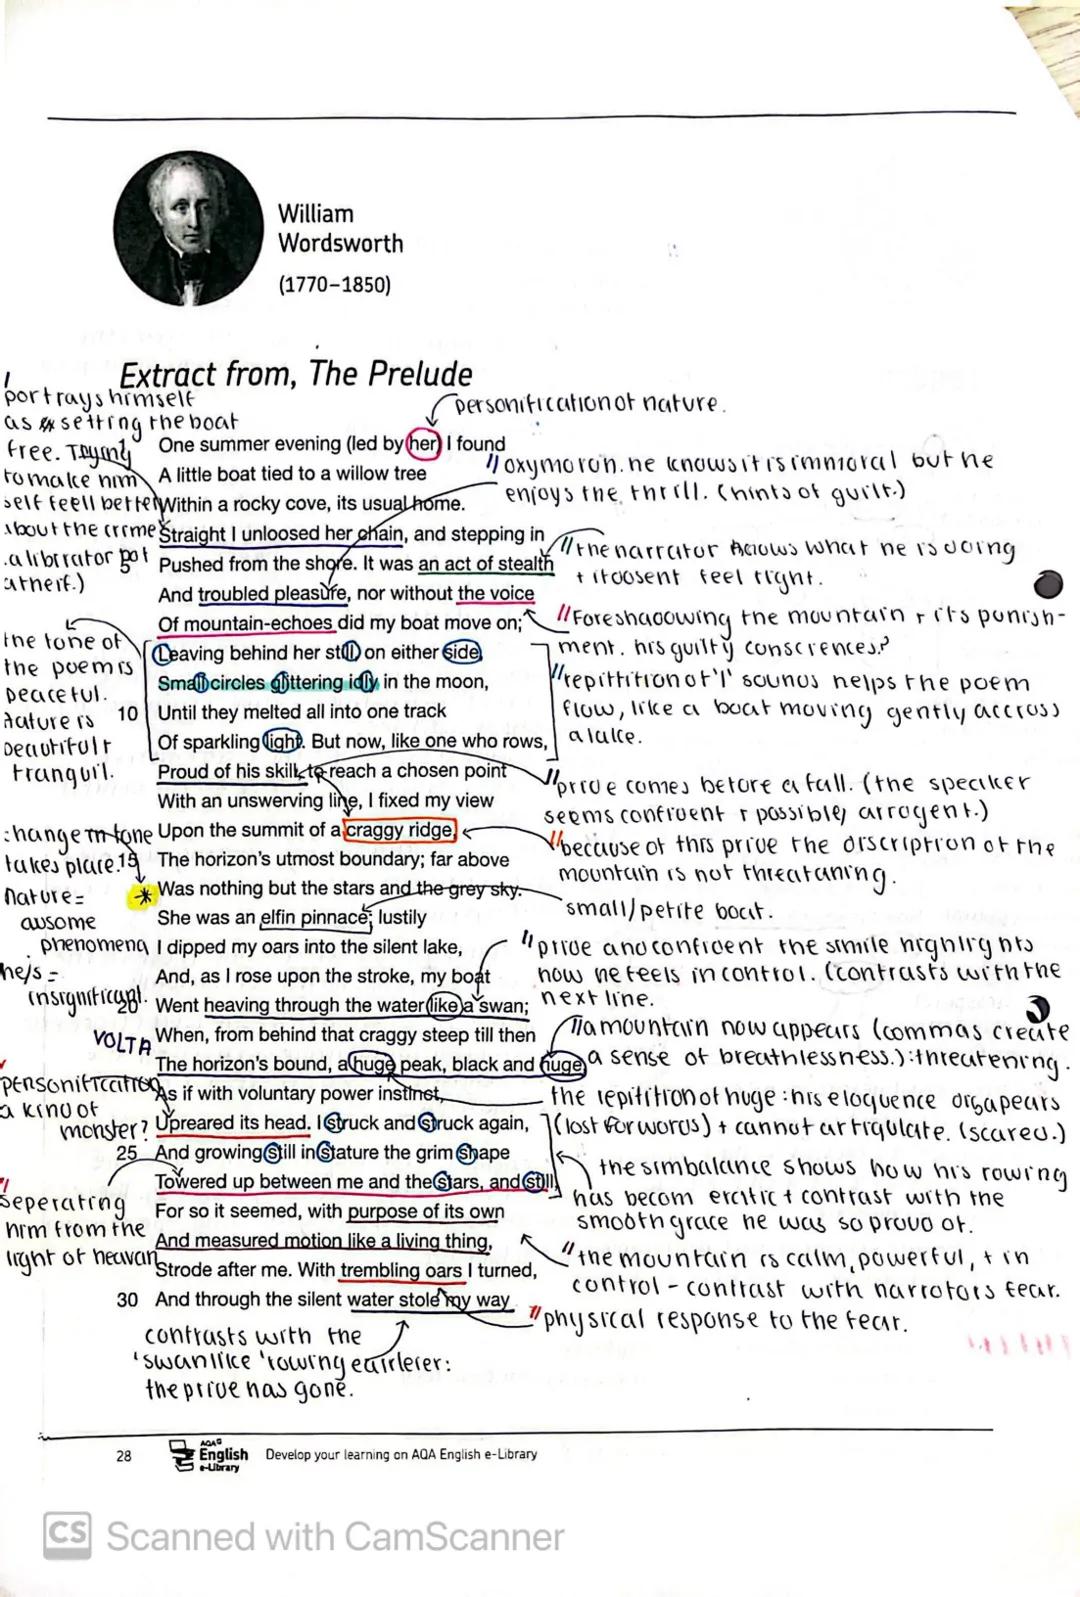 William
Wordsworth
(1770–1850)
Extract from, The Prelude
portrays himself
as setting the boat
free. Trying
to make him
self feell better
about the crime
.a librator not
a theif.)
personification of nature.
One summer evening (led by her) I found
A little boat tied to a willow tree
Within a rocky cove, its usual home.
Straight I unloosed her chain, and stepping in
Pushed from the shore. It was an act of stealth
And troubled pleasure, nor without the voice
Of mountain-echoes did my boat move on;
Leaving behind her still, on either side,
Small circles glittering idly in the moon,
10 Until they melted all into one track
Of sparkling light. But now, like one who rows,
Proud of his skill, to reach a chosen point
With an unswerving line, I fixed my view
Upon the summit of a craggy ridge,
15 The horizon's utmost boundary; far above
Was nothing but the stars and the grey sky.
She was an elfin pinnace; lustily
I dipped my oars into the silent lake,
And, as I rose upon the stroke, my boat
20 Went heaving through the water like a swan;
When, from behind that craggy steep till then
The horizon's bound, a huge peak, black and huge,
As if with voluntary power instinct,
Upreared its head. I struck and struck again,
25 And growing still in stature the grim shape
Towered up between me and the stars, and still,
For so it seemed, with purpose of its own
And measured motion like a living thing,
Strode after me. With trembling oars I turned,
30 And through the silent water stole my way
oxymoron. he knows it is immoral but he
enjoys the thrill. (hints of guilt.)
the narrator knows what he is doing
+ it doosent feel right.
Foreshadowing the mountain + its punish-
ment. his guilty consciences?
"repittition of 'l' sounds helps the poem
flow, like a boat moving gently accross
a lake.
"pride comes before a fall. (the speaker
seems confident + possible, arrogent.)
"because of this pride the discription of the
mountain is not threataning.
small/petite boat.
"pride and confident the simile highlights
how he feels in control. (contrasts with the
next line.
"a mountain now appears (commas create
a sense of breathlessness.) : threatening.
the repitition of huge : his eloquence dissapears
(lost for words) + cannot artiqulate. (scared.)
the simbalance shows how his rowing
has becom eratic + contrast with the
smooth grace he was so proud of.
"the mountain is calm, powerful, + in
control - contrast with narrotors fear.
"physical response to the fear.
the tone of
the poem is
peaceful.
Nature is
beautiful +
tranquil.
change in tone
takes place.
Nature =
awsome
phenomena
he/s =
insignificant.
VOLTA
personification
a kind of
monster?
seperating
him from the
light of heavan
contrasts with the
'swan like' rowing eairlerer:
the pride has gone.
28
AQA
English
e-Library
Develop your learning on AQA English e-Library
CS Scanned with CamScanner